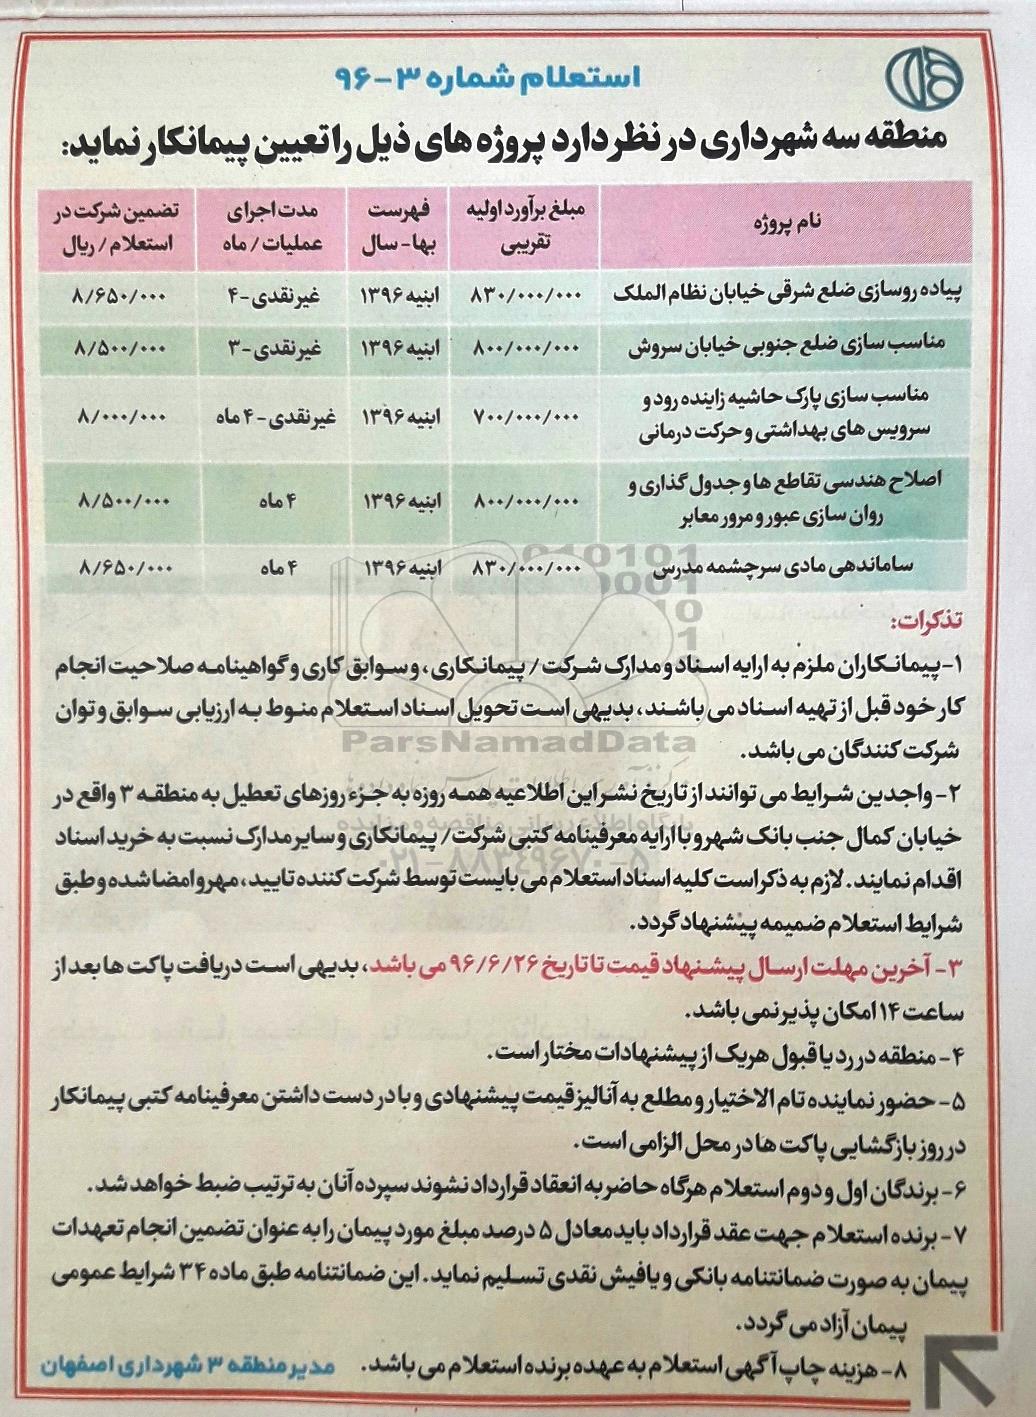 استعلام شماره ۳-۹۶
منطقه سه شهرداری در نظر دارد پروژه های ذیل را تعیین پیمانکار نماید:
نام پروژه | مبلغ برآورد اولیه تقریبی | فهرست بها- سال | مدت اجرای عملیات / ماه | تضمین شرکت در استعلام / ریال
پیاده روسازی ضلع شرقی خیابان نظام الملک | ۸۳۰/۰۰۰/۰۰۰ | ابنیه ۱۳۹۶ | غیرنقدی-۴ | ۸/۶۵۰/۰۰۰
مناسب سازی ضلع جنوبی خیابان سروش | ۸۰۰/۰۰۰/۰۰۰ | ابنیه ۱۳۹۶ | غیرنقدی-۳ | ۸/۵۰۰/۰۰۰
مناسب سازی پارک حاشیه زاینده رود و سرویس های بهداشتی و حرکت درمانی | ۷۰۰/۰۰۰/۰۰۰ | ابنیه ۱۳۹۶ | غیرنقدی-۴ ماه | ۸/۰۰۰/۰۰۰
اصلاح هندسی تقاطع ها و جدول گذاری و روان سازی عبور و مرور معابر | ۸۰۰/۰۰۰/۰۰۰ | ابنیه ۱۳۹۶ | ۴ ماه | ۸/۵۰۰/۰۰۰
ساماندهی مادی سرچشمه مدرس | ۸۳۰/۰۰۰/۰۰۰ | ابنیه ۱۳۹۶ | ۴ ماه | ۸/۶۵۰/۰۰۰
تذکرات:
۱-پیمانکاران ملزم به ارایه اسناد و مدارک شرکت/ پیمانکاری، و سوابق کاری و گواهینامه صلاحیت انجام
کار خود قبل از تهیه اسناد می باشند، بدیهی است تحویل اسناد استعلام منوط به ارزیابی سوابق و توان
شرکت کنندگان می باشد.
۲- واجدین شرایط می توانند از تاریخ نشر این اطلاعیه همه روزه به جزء روزهای تعطیل به منطقه ۳ واقع در
خیابان کمال جنب بانک شهر و با ارایه معرفینامه کتبی شرکت/ پیمانکاری و سایر مدارک نسبت به خرید اسناد
اقدام نمایند. لازم به ذکر است کلیه اسناد استعلام می بایست توسط شرکت کننده تایید، مهر و امضا شده و طبق
شرایط استعلام ضمیمه پیشنهاد گردد.
۳- آخرین مهلت ارسال پیشنهاد قیمت تا تاریخ ۹۶/۶/۲۶ می باشد، بدیهی است دریافت پاکت ها بعد از
ساعت ۱۴ امکان پذیر نمی باشد.
۴- منطقه در رد یا قبول هریک از پیشنهادات مختار است.
۵- حضور نماینده تام الاختیار و مطلع به آنالیز قیمت پیشنهادی و با در دست داشتن معرفینامه کتبی پیمانکار
در روز بازگشایی پاکت ها در محل الزامی است.
۶- برندگان اول و دوم استعلام هرگاه حاضر به انعقاد قرارداد نشوند سپرده آنان به ترتیب ضبط خواهد شد.
۷- برنده استعلام جهت عقد قرارداد باید معادل ۵ درصد مبلغ مورد پیمان را به عنوان تضمین انجام تعهدات
پیمان به صورت ضمانتنامه بانکی و یا فیش نقدی تسلیم نماید. این ضمانتنامه طبق ماده ۳۴ شرایط عمومی
پیمان آزاد می گردد.
۸- هزینه چاپ آگهی استعلام به عهده برنده استعلام می باشد. مدیر منطقه ۳ شهرداری اصفهان
ParsNamadData
پایگاه اطلاع رسانی مناقصه و مزایده
۰۲۱-۸۸۳۴۹۶۷۰-۵